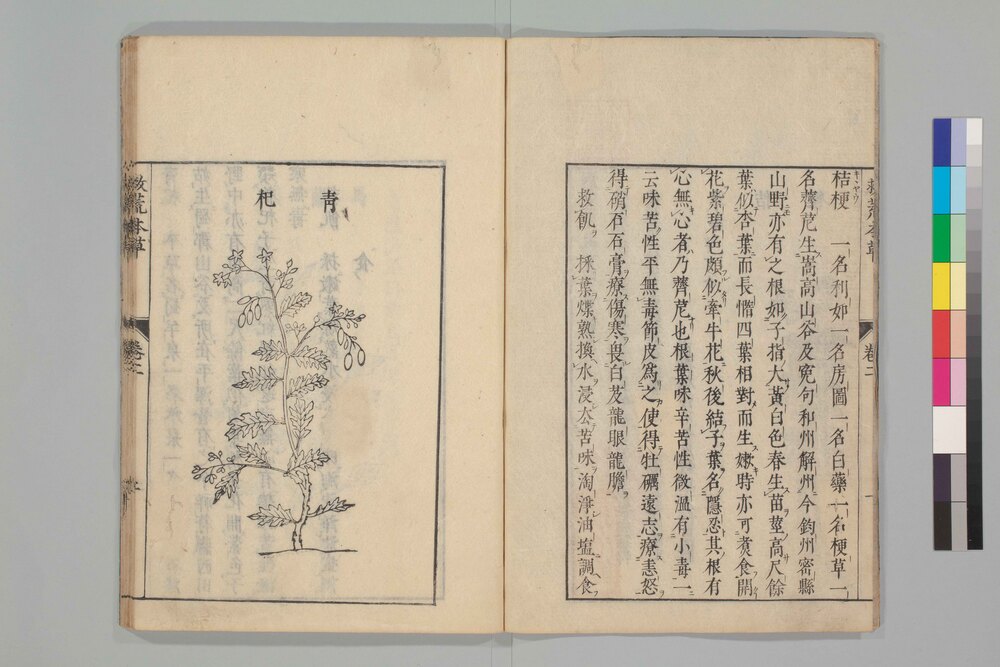 桔梗 一名利如一名房圖一名白藥一名梗草一
名薺苨生嵩高山谷及冤句和州解州今鈞州密縣
山野亦有之根如手指大黃白色春生苗莖高尺餘
葉似杏葉而長慴四葉相對而生嫩時亦可煑食開
花紫碧色頗似牽牛花秋後結子葉名隱忍其根有
心無心者乃薺苨也根葉味辛苦性微温有小毒一
云味苦性平無毒節皮爲之使得牡礪遠志療恚怒
得硝石石膏療傷寒畏白芨龍眼龍膽
救飢 採葉煠熟換水浸去苦味淘淨油塩調食
救荒本草
卷二
一
青
杞
救荒本草
卷二